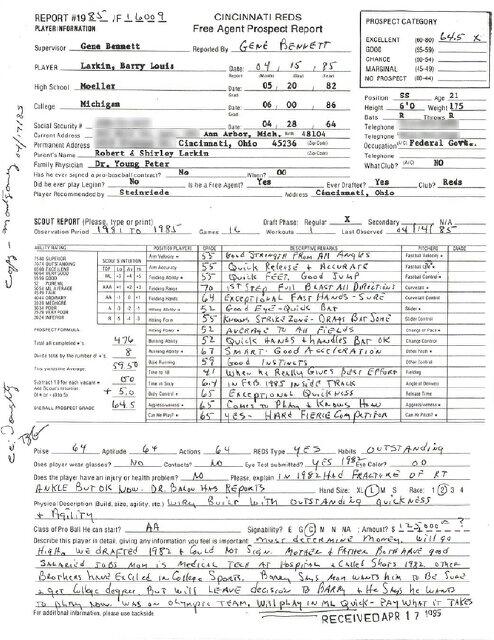 REPORT #1985 /F16009
PLAYER INFORMATION
CINCINNATI REDS
Free Agent Prospect Report
Supervisor Gene Bennett Reported By GENE BENNETT
PROSPECT CATEGORY
EXCELLENT (60-80) 64.5 X
GOOD (55-59)
CHANCE (50-54)
MARGINAL (45-49)
NO PROSPECT (44-40)
PLAYER Larkin, Barry Louis Date: 04 15 85
High School Moeller 05 20 82
College Michigan 06 00 86
Position SS Age 21
Height 6'0 Weight 175
Bats R Throws R
Social Security # 04 28 64
Current Address Ann Arbor, Mich. 48104
Permanent Address Cincinnati, Ohio 45236 (Zip Code)
Telephone
Telephone
Telephone
Parent's Name Robert & Shirley Larkin
Occupation Federal Gov't.
Family Physician Dr. Young Peter
Has he ever signed a pro baseball contract? No When? 00 What Club? (A/C) NO
Did he ever play Legion? No Is he a Free Agent? Yes Ever Drafted? Yes Club? Reds
Player Recommended by Steinriede Address Cincinnati, Ohio
SCOUT REPORT (Please, type or print) Draft Phase: Regular X Secondary N/A
Observation Period 1981 TO 1985 Games 16 Workouts 1 Date Last Observed? 04/14/85
ABILITY RATING
SCOUT'S INTENTION
POSITION PLAYERS GRADE DESCRIPTIVE REMARKS PITCHERS GRADE
Arm Velocity 55 GOOD STRENGTH FROM ALL ANGLES Fastball Velocity
Arm Accuracy 55 QUICK RELEASE & ACCURATE
Fielding Ability 55 QUICK FEET. GOOD JUMP
Fielding Range 70 1ST STEP FULL BLAST ALL DIRECTIONS Curveball
Fielding Hands 64 EXCEPTIONAL FAST HANDS - SURE Curveball Control
52 GOOD EYE - QUICK BAT Slider
55 KNOWS STRIKE ZONE - DRAGS BAT SOME Slider Control
52 AVERAGE TO ALL FIELDS
52 QUICK HANDS & HANDLES BAT OK
Running Ability 67 SMART - GOOD ACCELERATION
Base Running 59 GOOD INSTINCTS
41 WHEN HE REALLY GIVES BEST EFFORT Fielding
Time in Sixty 64 IN FEB. 1985 INSIDE TRACK Angle of Delivery
Body Control 65 EXCEPTIONAL QUICKNESS Release Time
Aggressiveness 65 COMES TO PLAY & KNOWS HOW Aggressiveness
Can He Play? 65 YES - HARD FIERIE COMPETITOR Can He Pitch?
PROSPECT FORMULA
Total all completed #'s 476
Divide total by the number of #'s 8
59.50
Subtract 10 for each vacant 00
+ 5.0
OVERALL PROSPECT GRADE 64.5
Poise 64 Aptitude 64 Actions 64 REDS Type YES Habits OUTSTANDING
Does player wear glasses? NO Contacts? NO Eye Test submitted? YES 1982 Eye Color? 00
Does the player have an injury or health problem? NO Please, explain IN 1982 HAD FRACTURE OF RT
ANKLE BUT OK NOW. DR. BALON HAS REPORTS Hand Size: XL L M S Race: 1 2 3 4
Physical Description (Build, size, agility, etc.) WIRY BUILT WITH OUTSTANDING QUICKNESS
& AGILITY
Class of Pro Ball He can start? AA Signability? E G C M N NA; Amount? $125,000 ?
Describe this player in detail, giving any information you feel is important: MUST DETERMINE MONEY. WILL GO
HIGH. WE DRAFTED 1982 & COULD NOT SIGN. MOTHER & FATHER BOTH HAVE GOOD
SALARIED JOBS. MOM IS MEDICAL TECH AT HOSPITAL & CALLED SHOTS 1982. OTHER
BROTHERS HAVE EXCELED IN COLLEGE SPORTS. BARRY SAYS MOM WANTS HIM TO BE SURE
& GET COLLEGE DEGREE. BUT WILL LEAVE DECISION TO BARRY & HE SAYS HE WANTS
TO PLAY NOW. WAS ON OLYMPIC TEAM. WILL PLAY IN ML QUICK - PAY WHAT IT TAKES
For additional information, please use backside.
RECEIVED APR 17 1985